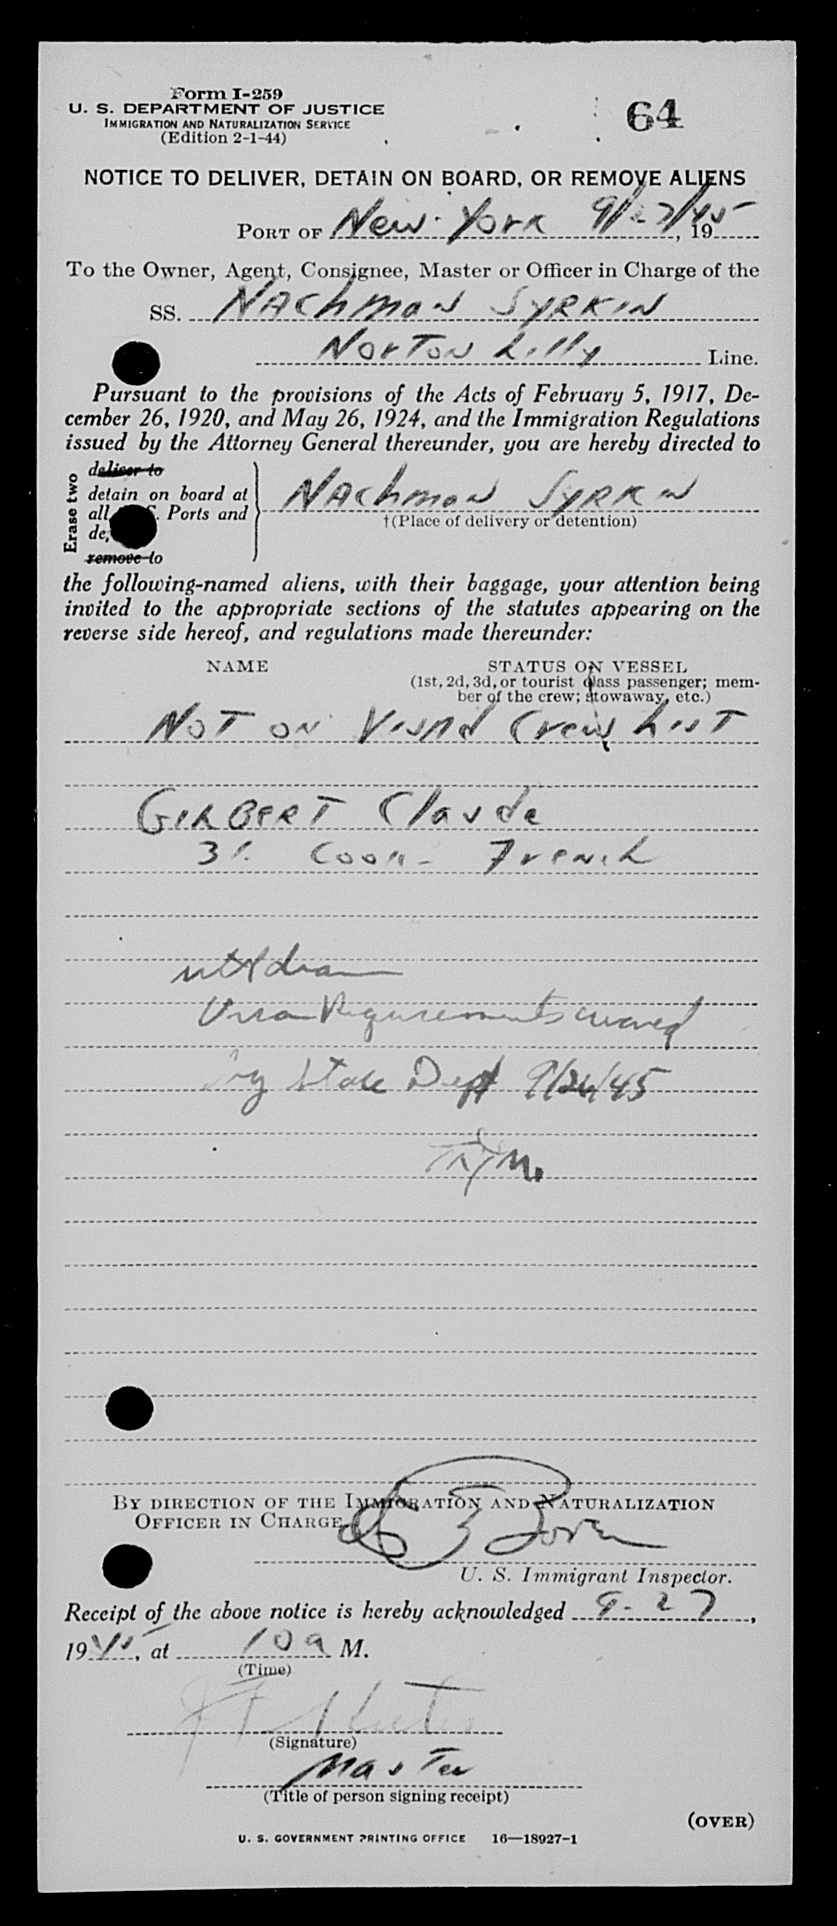 Form I-259
U. S. DEPARTMENT OF JUSTICE
IMMIGRATION AND NATURALIZATION SERVICE
(Edition 2-1-44)
64
NOTICE TO DELIVER, DETAIN ON BOARD, OR REMOVE ALIENS
PORT OF New York 9/27/45, 19
To the Owner, Agent, Consignee, Master or Officer in Charge of the
SS. Nachman Syrkin
Norton Lilly Line.
Pursuant to the provisions of the Acts of February 5, 1917, De-
cember 26, 1920, and May 26, 1924, and the Immigration Regulations
issued by the Attorney General thereunder, you are hereby directed to
Erase two
deliver to
detain on board at
all S. Ports and
de
remove to
Nachman Syrkin
†(Place of delivery or detention)
the following-named aliens, with their baggage, your attention being
invited to the appropriate sections of the statutes appearing on the
reverse side hereof, and regulations made thereunder:
NAME STATUS ON VESSEL
(1st, 2d, 3d, or tourist class passenger; mem-
ber of the crew; stowaway, etc.)
NOT ON Visaed Crew List
GIRBERT Claude
3/ Cook - French
Visa Requirements waived
by State Dept 9/26/45
BY DIRECTION OF THE IMMIGRATION AND NATURALIZATION
OFFICER IN CHARGE
U. S. Immigrant Inspector.
Receipt of the above notice is hereby acknowledged 9-27,
1945, at 10 a M.
(Time)
(Signature)
Master
(Title of person signing receipt)
(OVER)
U. S. GOVERNMENT PRINTING OFFICE 16—18927-1